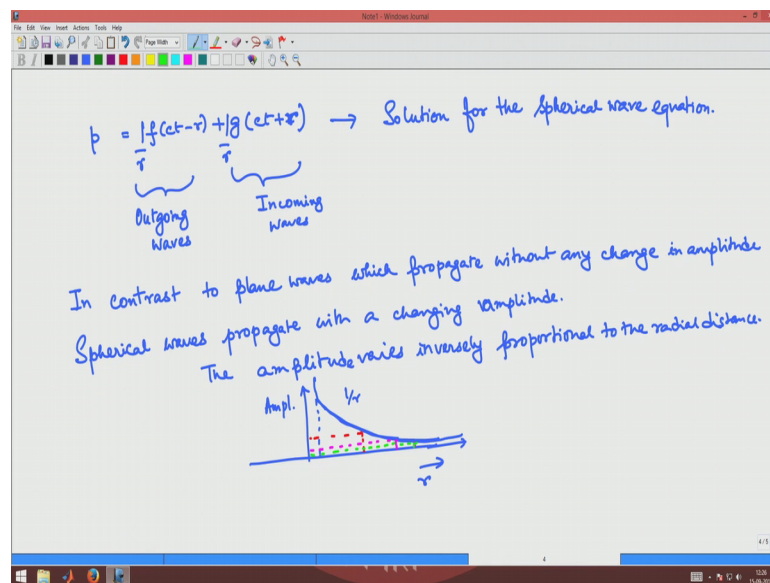 Note1 - Windows Journal
File Edit View Insert Actions Tools Help
Page Width
B I
p = 1/r f(ct-r) + 1/r g(ct+r) → Solution for the spherical wave equation.
Outgoing waves
Incoming waves
In contrast to plane waves which propagate without any change in amplitude
Spherical waves propagate with a changing amplitude.
The amplitude varies inversely proportional to the radial distance.
Ampl.
1/r
r
4/5
4
12:26